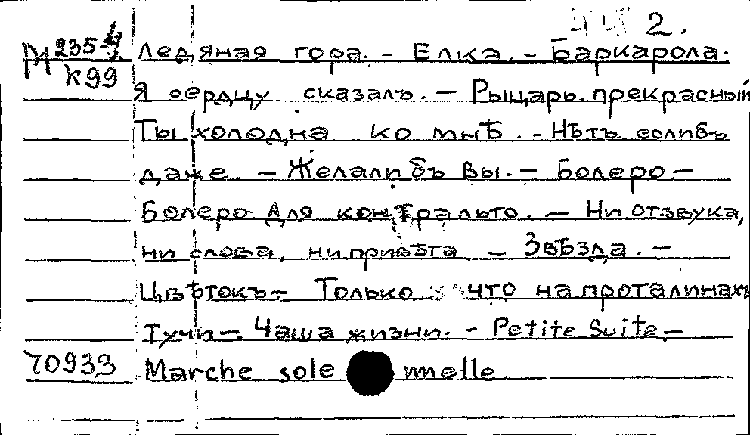 2.
М 235-4 Ледяная гора. - Елка. - Баркарола.
К99
Я сердцу сказалъ. - Рыцарь прекрасный
Ты холодна ко мнѣ. - Нѣтъ еслибъ
даже - Желали бъ Вы. - Болеро -
Болеро для контральто. - Ни отзвука,
ни слова, ни привѣта - Звѣзда. -
Цвѣтокъ - Только что на проталинахъ
Тучи - Чаша жизни. - Petite Suite. -
70933 Marche sole nnelle